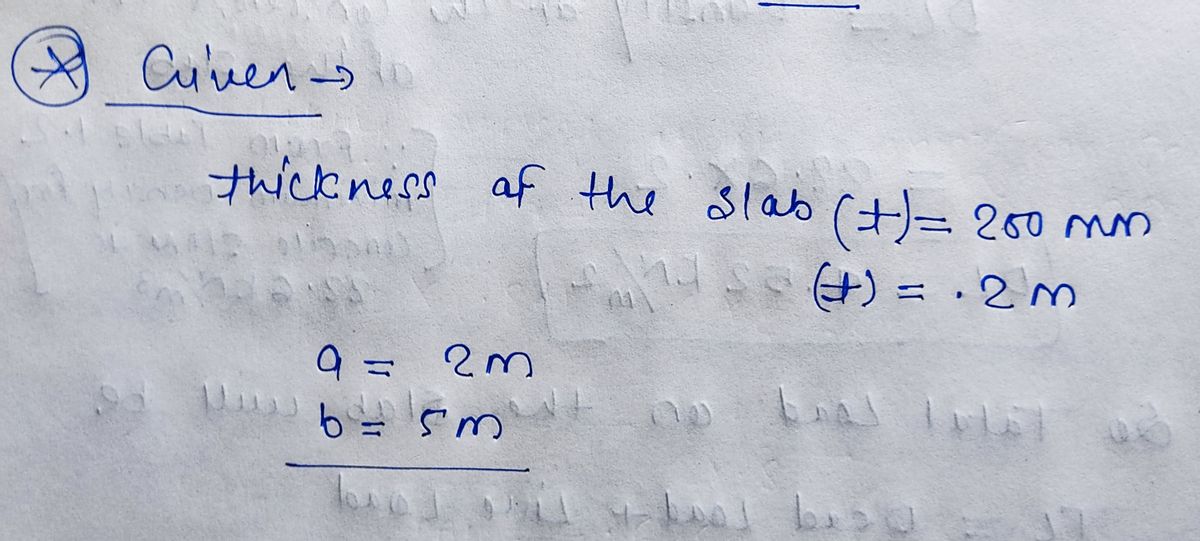 Given →
thickness of the slab (t) = 200 mm
(t) = .2 m
a = 2 m
b = 5 m